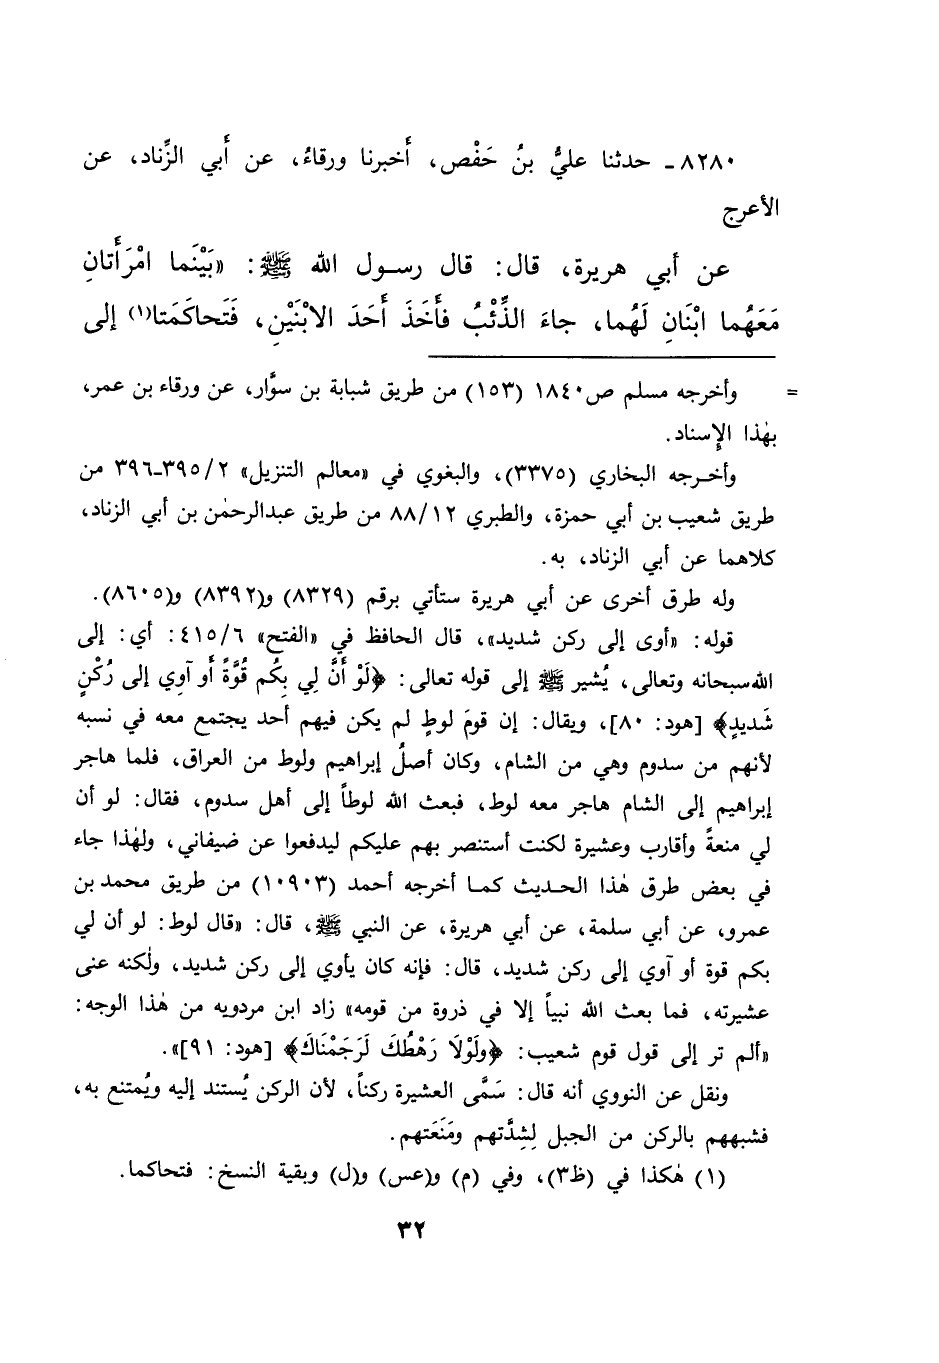 ٨٢٨٠ـ حدثنا عليُّ بنُ حَفْص، أَخبرنا ورقاءُ، عن أَبي الزِّناد، عن
الأعرج
عن أبي هريرة، قال: قال رسـول الله ﷺ: «بَيْنَما امْرَأَتانِ
مَعَهُما ابْنَانِ لَهُما، جاءَ الذِّئْبُ فأَخَذَ أَحَدَ الابْنَيْنِ، فَتَحاكَمَتا(١) إلى
= وأخرجه مسلم ص١٨٤٠ (١٥٣) من طريق شبابة بن سوَّار، عن ورقاء بن عمر،
بهٰذا الإسناد.
وأخـرجه البخاري (٣٣٧٥)، والبغوي في «معالم التنزيل» ٣٩٥/٢-٣٩٦ من
طريق شعيب بن أبي حمزة، والطبري ٨٨/١٢ من طريق عبدالرحمٰن بن أبي الزناد،
كلاهما عن أبي الزناد، به.
وله طرق أخرى عن أبي هريرة ستأتي برقم (٨٣٢٩) و(٨٣٩٢) و(٨٦٠٥).
قوله: «أوى إلى ركن شديد»، قال الحافظ في «الفتح» ٤١٥/٦: أي: إلى
الله سبحانه وتعالى، يُشير ﷺ إلى قوله تعالى: ﴿لَوْ أَنَّ لي بِكُم قُوَّةً أَو آوِي إلى رُكْنٍ
شَديدٍ﴾ [هود: ٨٠]، ويقال: إن قومَ لوطٍ لم يكن فيهم أحد يجتمع معه في نسبه
لأنهم من سدوم وهي من الشام، وكان أصلُ إبراهيم ولوط من العراق، فلما هاجر
إبراهيم إلى الشام هاجر معه لوط، فبعث الله لوطاً إلى أهل سدوم، فقال: لو أن
لي منعةً وأقارب وعشيرة لكنت أستنصر بهم عليكم ليدفعوا عن ضيفاني، ولهٰذا جاء
في بعض طرق هٰذا الحـديث كمـا أخرجه أحمد (١٠٩٠٣) من طريق محمد بن
عمرو، عن أبي سلمة، عن أبي هريرة، عن النبي ﷺ، قال: «قال لوط: لو أن لي
بكم قوة أو آوي إلى ركن شديد، قال: فإنه كان يأوي إلى ركن شديد، ولٰكنه عنى
عشيرته، فما بعث الله نبياً إلا في ذروة من قومه» زاد ابن مردويه من هٰذا الوجه:
«ألم تر إلى قول قوم شعيب: ﴿ولَوْلَا رَهْطُكَ لَرَجَمْنَاكَ﴾ [هود: ٩١]».
ونقل عن النووي أنه قال: سَمَّى العشيرة ركناً، لأن الركن يُستند إليه ويُمتنع به،
فشبههم بالركن من الجبل لِشِدَّتهم ومَنَعَتهم.
(١) هٰكذا في (ظ٣)، وفي (م) و(عس) و(ل) وبقية النسخ: فتحاكما.
٣٢